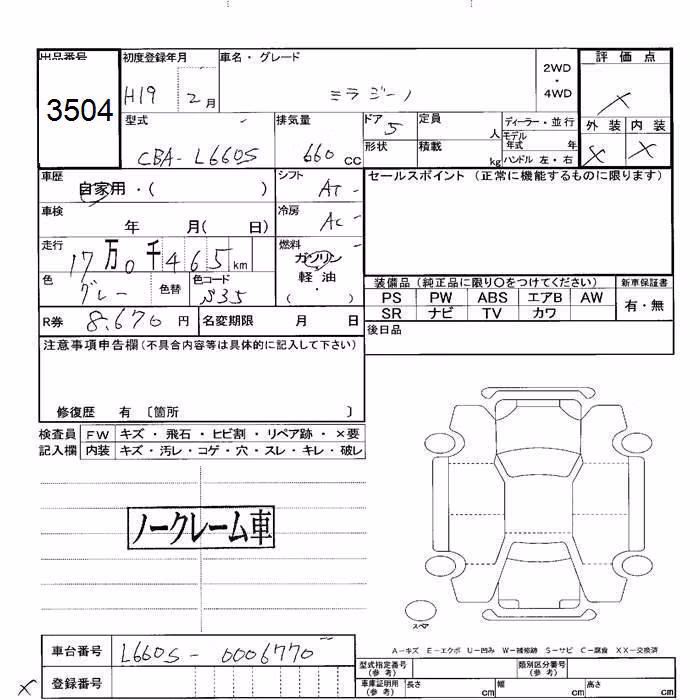 出品番号 初度登録年月 車名・グレード 評価点
3504 H19 2月 ミラジーノ 2WD・4WD
型式 排気量 ドア 5 定員 人 ディーラー・並行 外装 内装
CBA-L660S 660cc 形状 積載 kg モデル年式 年 × ×
ハンドル 左・右
車歴 自家用・( ) シフト AT セールスポイント (正常に機能するものに限ります)
車検 年 月( 日) 冷房 AC
走行 17万0千465km 燃料 ガソリン
軽油・( )
色 グレー 色替 色コード S35 装備品 (純正品に限り○をつけてください) 新車保証書
PS PW ABS エアB AW 有・無
SR ナビ TV カワ
R券 8,670円 名変期限 月 日 後日品
注意事項申告欄(不具合内容等は具体的に記入して下さい)
修復歴 有 〔箇所 〕
検査員 FW キズ・飛石・ヒビ割・リペア跡・×要
記入欄 内装 キズ・汚レ・コゲ・穴・スレ・キレ・破レ
ノークレーム車
スペア
A-キズ E-エクボ U-凹み W-補修跡 S-サビ C-腐食 XX-交換済
車台番号 L660S-0006770
登録番号
型式指定番号(参考) 類別区分番号(参考)
車庫証明用(参考) 長さ cm 幅 cm 高さ cm
×